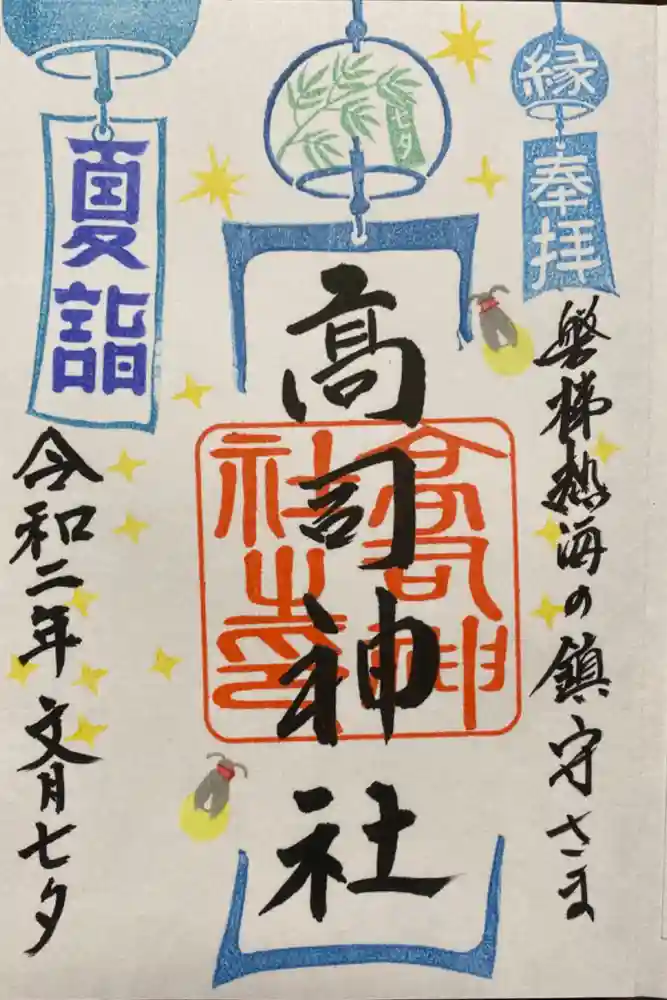 縁
奉拝
磐梯熱海の鎮守さま
七夕
高司神社
高司神社之印
夏詣
令和二年 文月七夕